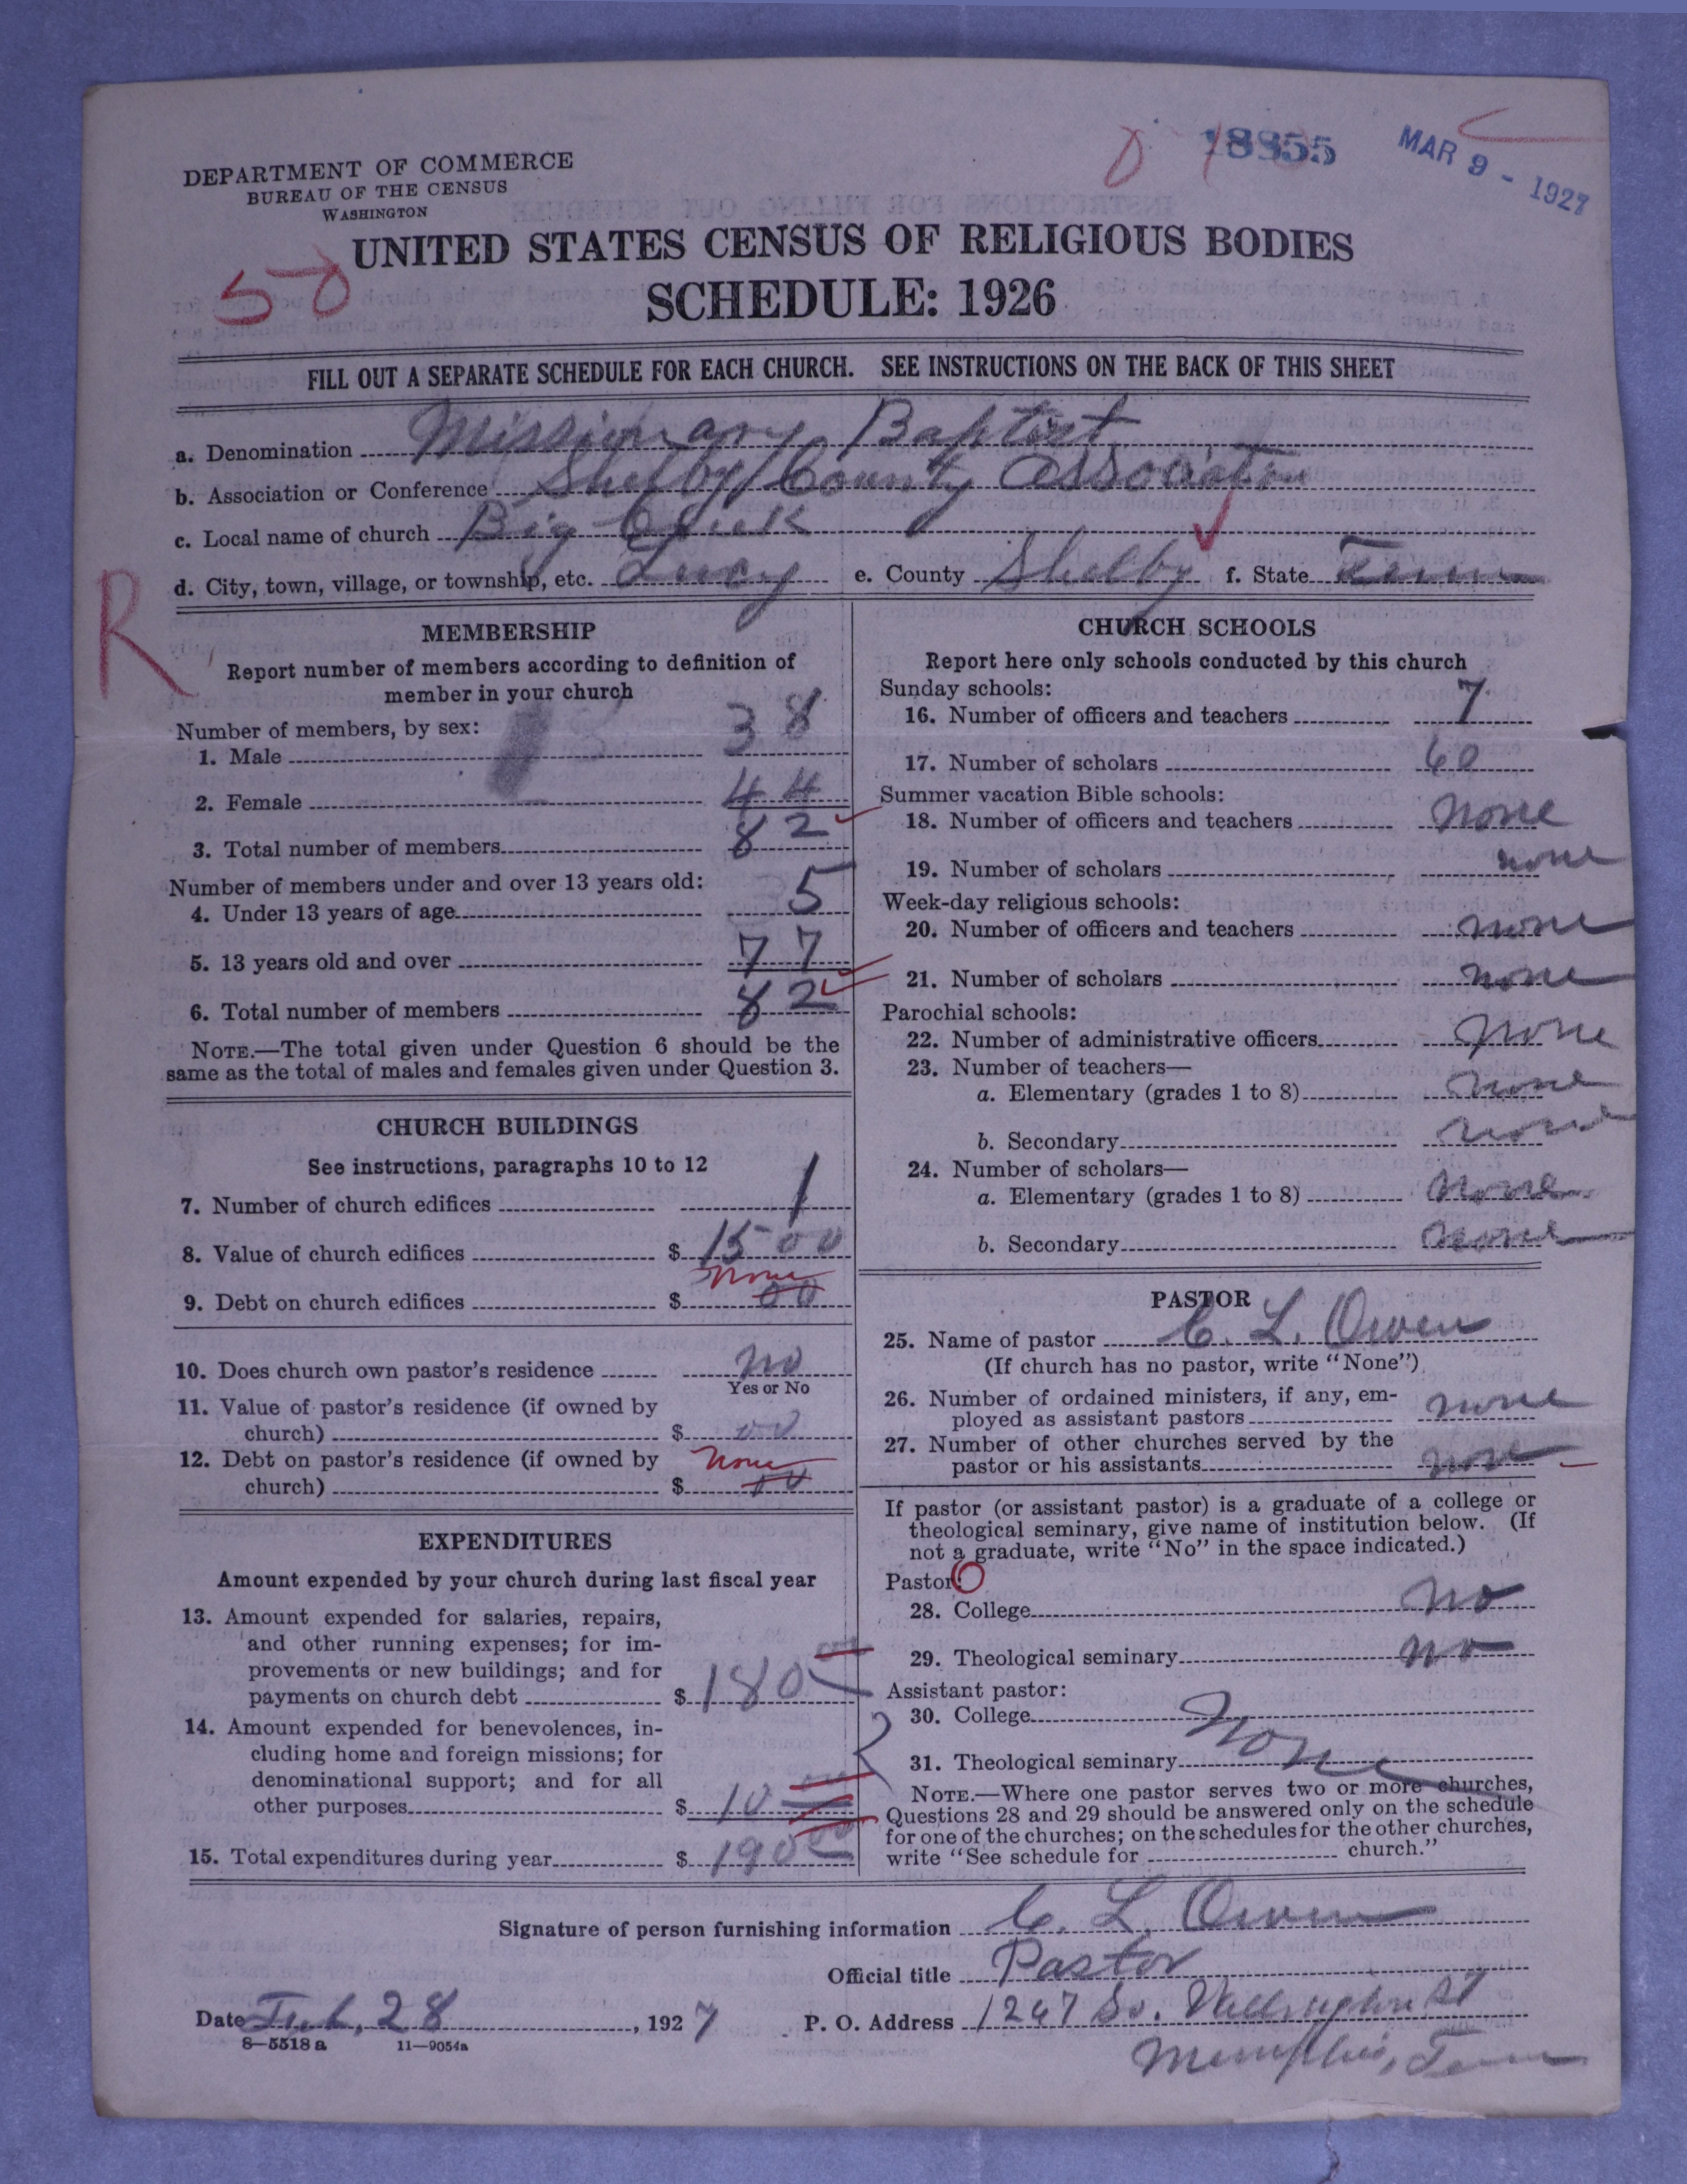 18355
MAR 9 - 1927
DEPARTMENT OF COMMERCE
BUREAU OF THE CENSUS
WASHINGTON
UNITED STATES CENSUS OF RELIGIOUS BODIES
50
SCHEDULE: 1926
FILL OUT A SEPARATE SCHEDULE FOR EACH CHURCH. SEE INSTRUCTIONS ON THE BACK OF THIS SHEET
a. Denomination Missionary Baptist
b. Association or Conference Shelby County Association
c. Local name of church Big Creek
d. City, town, village, or township, etc. Lucy e. County Shelby f. State Tenn
R
MEMBERSHIP
Report number of members according to definition of
member in your church
Number of members, by sex:
1. Male 38
2. Female 44
3. Total number of members 82
Number of members under and over 13 years old:
4. Under 13 years of age 5
5. 13 years old and over 77
6. Total number of members 82
NOTE.—The total given under Question 6 should be the
same as the total of males and females given under Question 3.
CHURCH BUILDINGS
See instructions, paragraphs 10 to 12
7. Number of church edifices 1
8. Value of church edifices $ 1500
none
9. Debt on church edifices $ 00
10. Does church own pastor's residence no
Yes or No
11. Value of pastor's residence (if owned by
church) $ 00
12. Debt on pastor's residence (if owned by none
church) $ 00
EXPENDITURES
Amount expended by your church during last fiscal year
13. Amount expended for salaries, repairs,
and other running expenses; for im-
provements or new buildings; and for
payments on church debt $ 180 00
14. Amount expended for benevolences, in-
cluding home and foreign missions; for
denominational support; and for all
other purposes $ 10 00
15. Total expenditures during year $ 190 00
CHURCH SCHOOLS
Report here only schools conducted by this church
Sunday schools:
16. Number of officers and teachers 7
17. Number of scholars 60
Summer vacation Bible schools:
18. Number of officers and teachers none
19. Number of scholars none
Week-day religious schools:
20. Number of officers and teachers none
21. Number of scholars none
Parochial schools:
22. Number of administrative officers none
23. Number of teachers—
a. Elementary (grades 1 to 8) none
b. Secondary none
24. Number of scholars—
a. Elementary (grades 1 to 8) none
b. Secondary none
PASTOR
25. Name of pastor C. L. Owen
(If church has no pastor, write "None")
26. Number of ordained ministers, if any, em-
ployed as assistant pastors none
27. Number of other churches served by the
pastor or his assistants none
If pastor (or assistant pastor) is a graduate of a college or
theological seminary, give name of institution below. (If
not a graduate, write "No" in the space indicated.)
Pastor:
28. College no
29. Theological seminary no
Assistant pastor:
30. College None
31. Theological seminary
NOTE.—Where one pastor serves two or more churches,
Questions 28 and 29 should be answered only on the schedule
for one of the churches; on the schedules for the other churches,
write "See schedule for church."
Signature of person furnishing information C. L. Owen
Official title Pastor
Date Feb, 28, 1927 P. O. Address 1247 So. St
Memphis, Tenn
8—5518 a 11—9054a